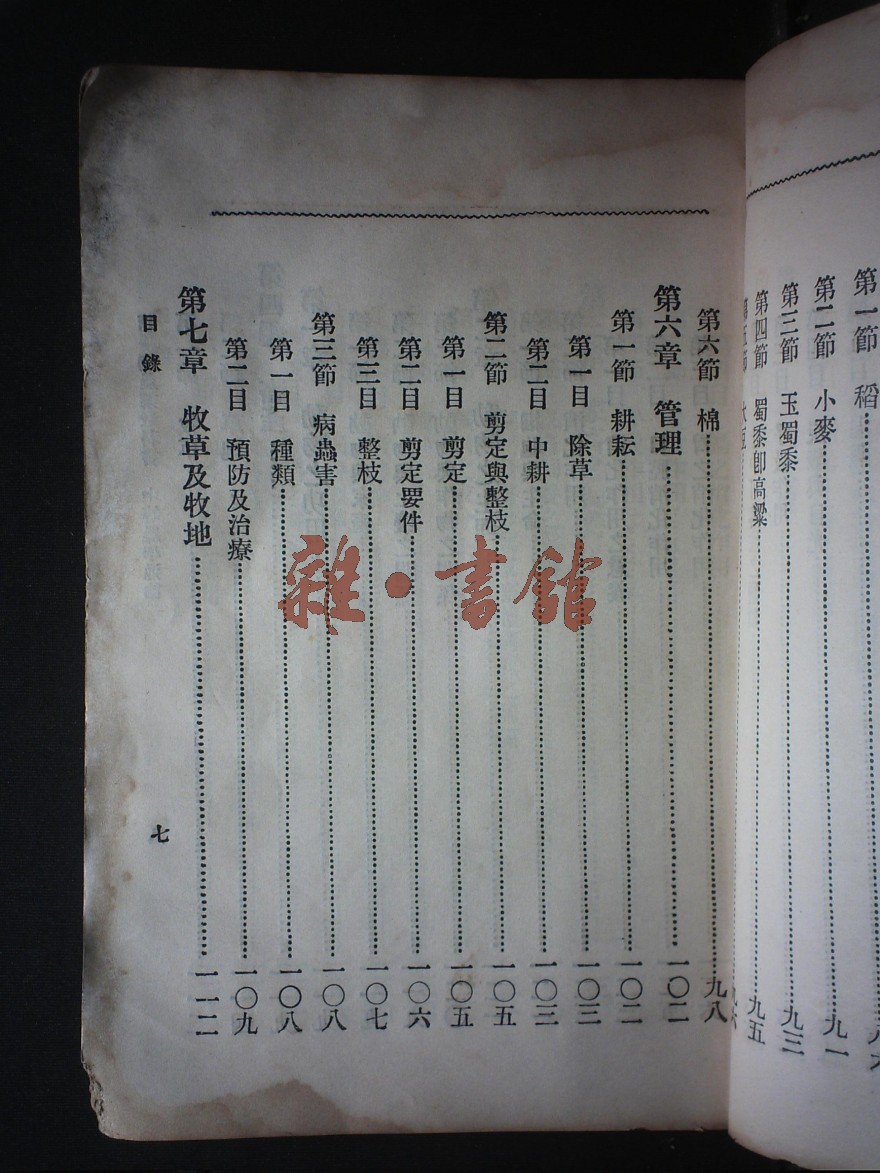 第一節 稻……八六
第二節 小麥……九一
第三節 玉蜀黍……九三
第四節 蜀黍卽高粱……九五
第六節 棉……九八
第六章 管理……一〇二
第一節 耕耘……一〇二
第一目 除草……一〇三
第二目 中耕……一〇三
第二節 剪定與整枝……一〇五
第一目 剪定……一〇五
第二目 剪定要件……一〇六
第三目 整枝……一〇七
第三節 病蟲害……一〇八
第一目 種類……一〇八
第二目 預防及治療……一〇九
第七章 牧草及牧地……一一二
目錄
七
雜·書館